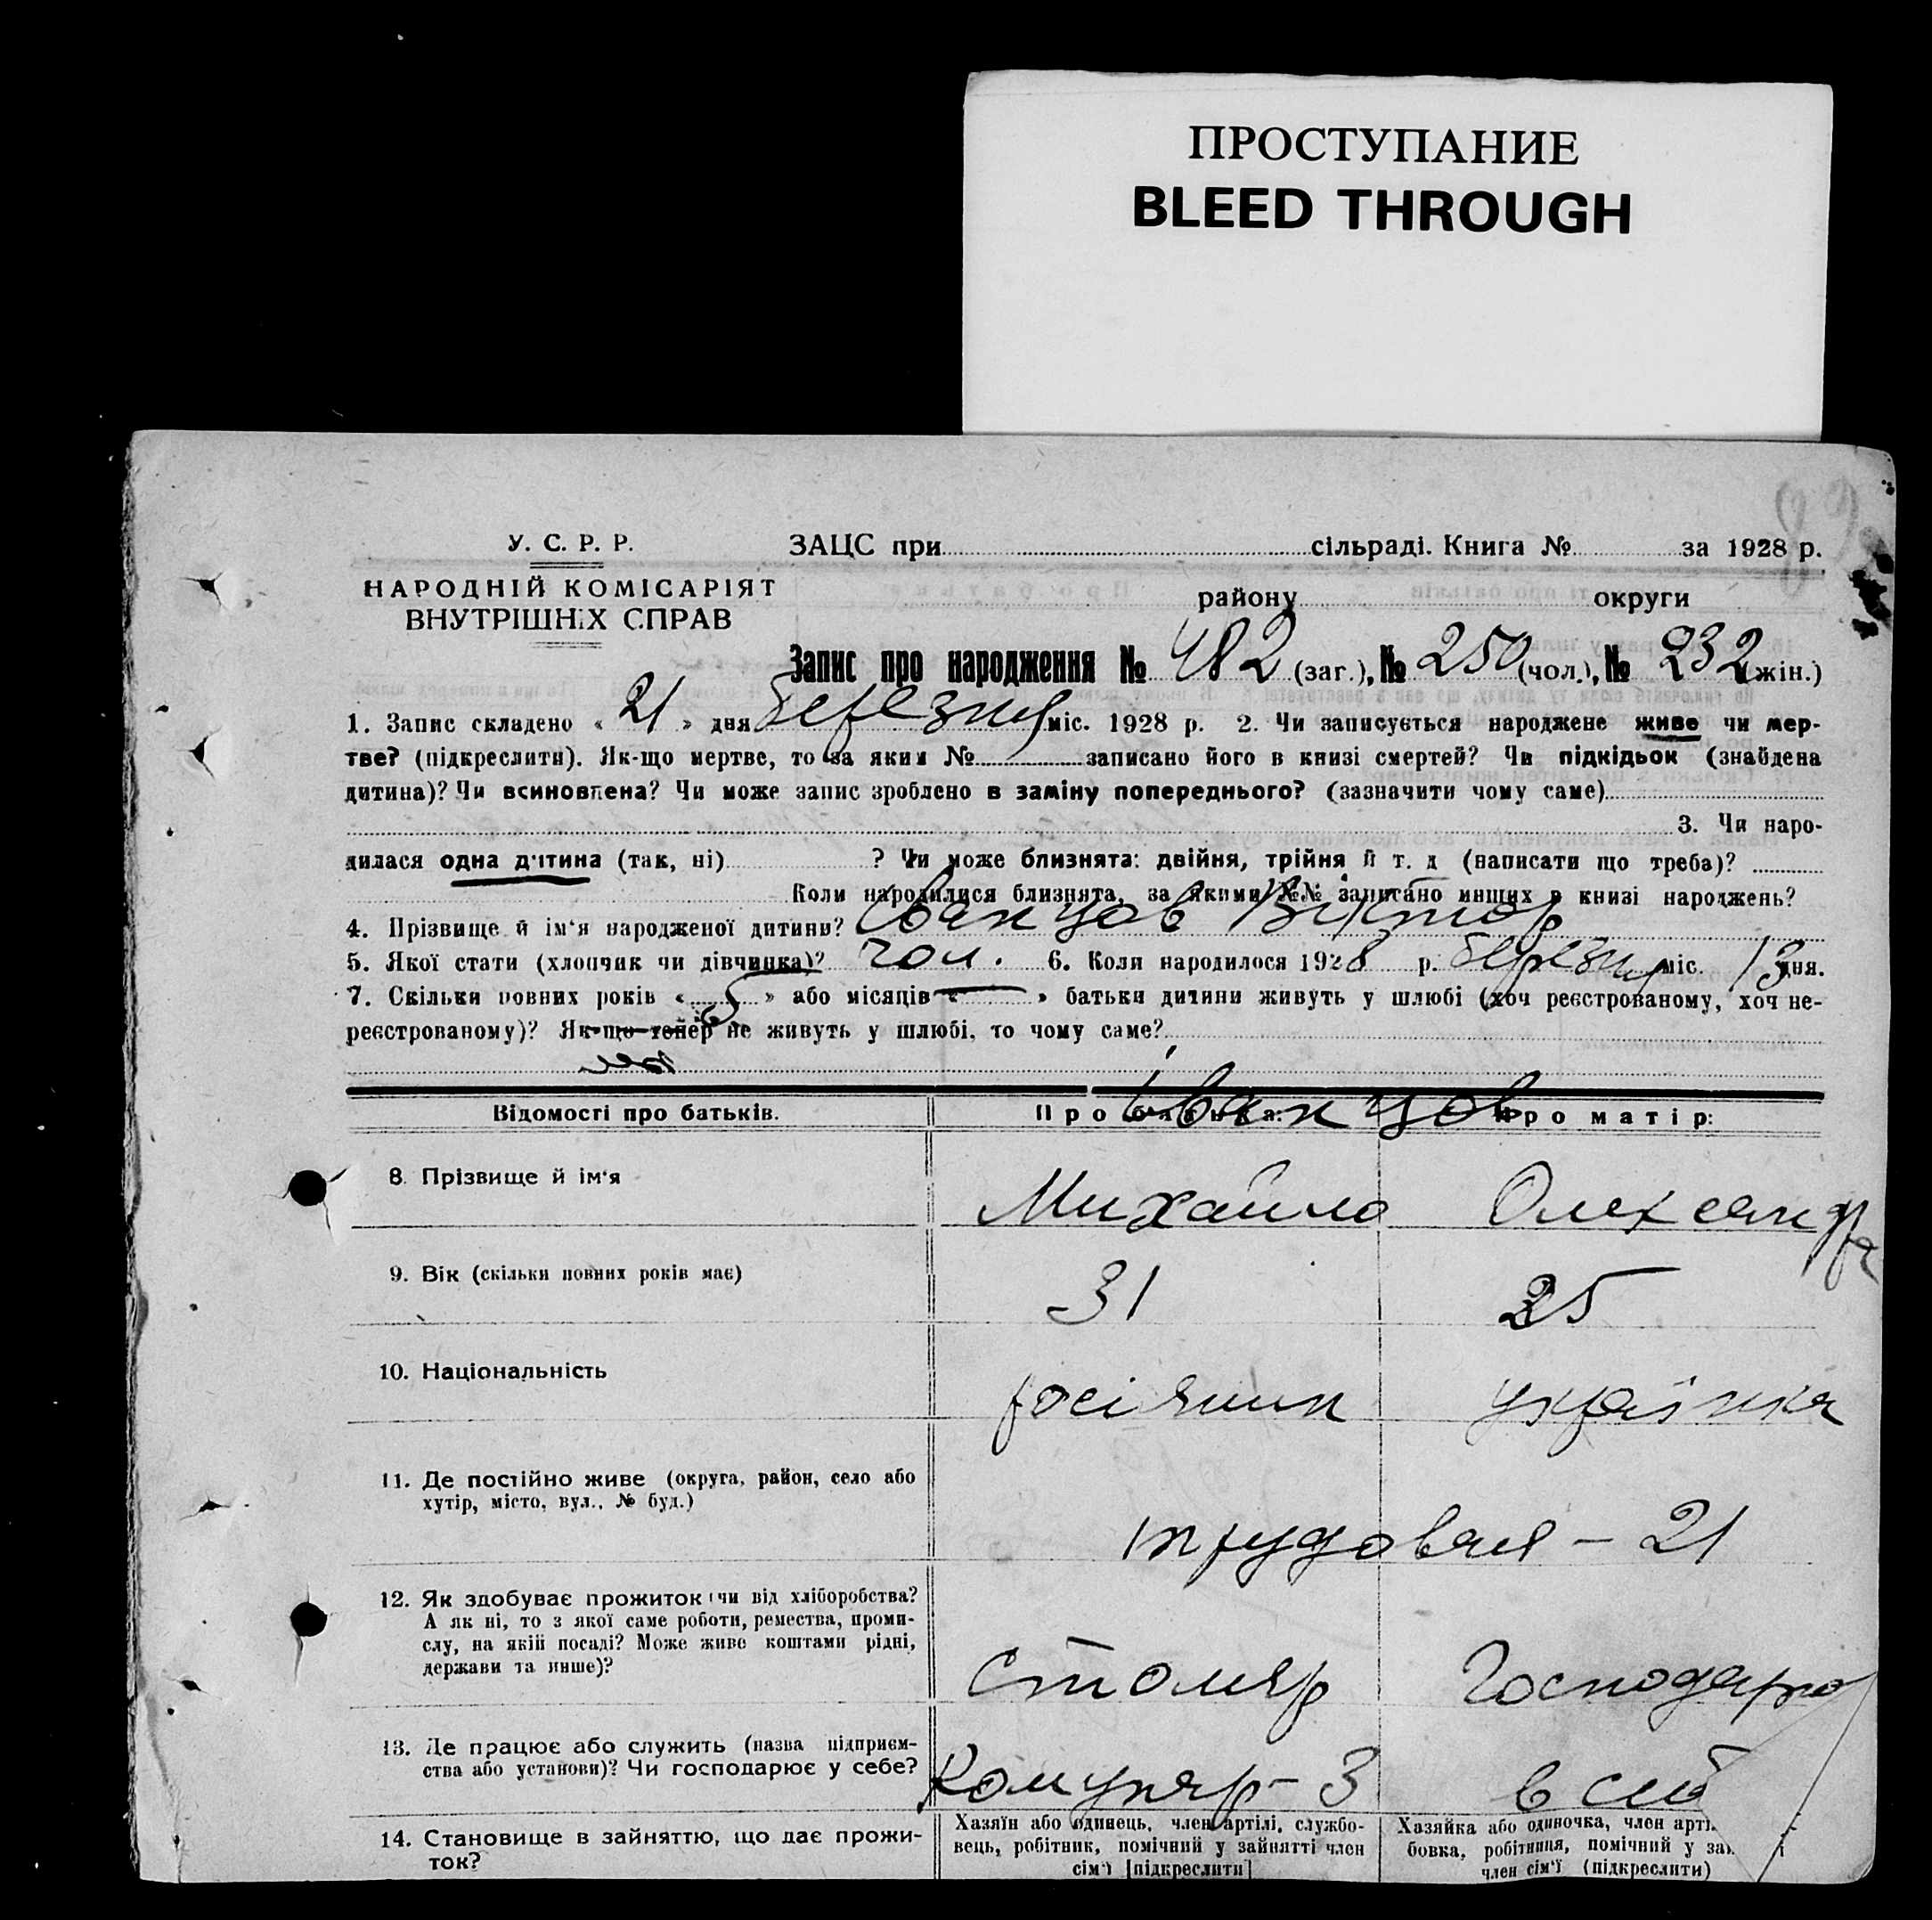 ПРОСТУПАНИЕ
BLEED THROUGH
У. С. Р. Р.
НАРОДНІЙ КОМІСАРІЯТ
ВНУТРІШНІХ СПРАВ
ЗАЦС при сільраді. Книга № за 1928 р.
району округи
Запис про народження № 482 (заг.), № 250 (чол.), № 232 (жін.)
1. Запис складено « 21 » дня березня міс. 1928 р. 2. Чи записується народжене живе чи мер-
тве? (підкреслити). Як-що мертве, то за яким № записано його в книзі смертей? Чи підкідьок (знайдена
дитина)? Чи всиновлена? Чи може запис зроблено в заміну попереднього? (зазначити чому саме)
3. Чи наро-
дилася одна дитина (так, ні) ? Чи може близнята: двійня, трійня й т. д (написати що треба)?
Коли народилися близнята, за якими №№ записано инших в книзі народжень?
4. Прізвище й ім'я народженої дитини? Іванцов Віктор
5. Якої стати (хлопчик чи дівчинка)? чол. 6. Коли народилося 1928 р. березня міс. 13 дня.
7. Скільки повних років « 5 » або місяців « — » батьки дитини живуть у шлюбі (хоч реєстрованому, хоч не-
реєстрованому)? Як-що тепер не живуть у шлюбі, то чому саме?
Відомості про батьків. Про батька: Про матір:
Іванцов
8. Прізвище й ім'я Михайло Олександра
9. Вік (скільки повних років має) 31 25
10. Національність росіянин українка
11. Де постійно живе (округа, район, село або
хутір, місто, вул., № буд.)
трудовая – 21
12. Як здобуває прожиток (чи від хліборобства?
А як ні, то з якої саме роботи, ремества, проми-
слу, на якій посаді? Може живе коштами рідні,
держави та инше)?
столяр Господар
13. Де працює або служить (назва підприєм-
ства або установи)? Чи господарює у себе?
Комунар – 3 в себ
14. Становище в зайняттю, що дає прожи-
ток?
Хазяїн або одинець, член артілі, службо-
вець, робітник, помічний у зайнятті член
сім'ї [підкреслити]
Хазяйка або одиночка, член арті
бовка, робітниця, помічний у за
член сім'ї (підкреслити)